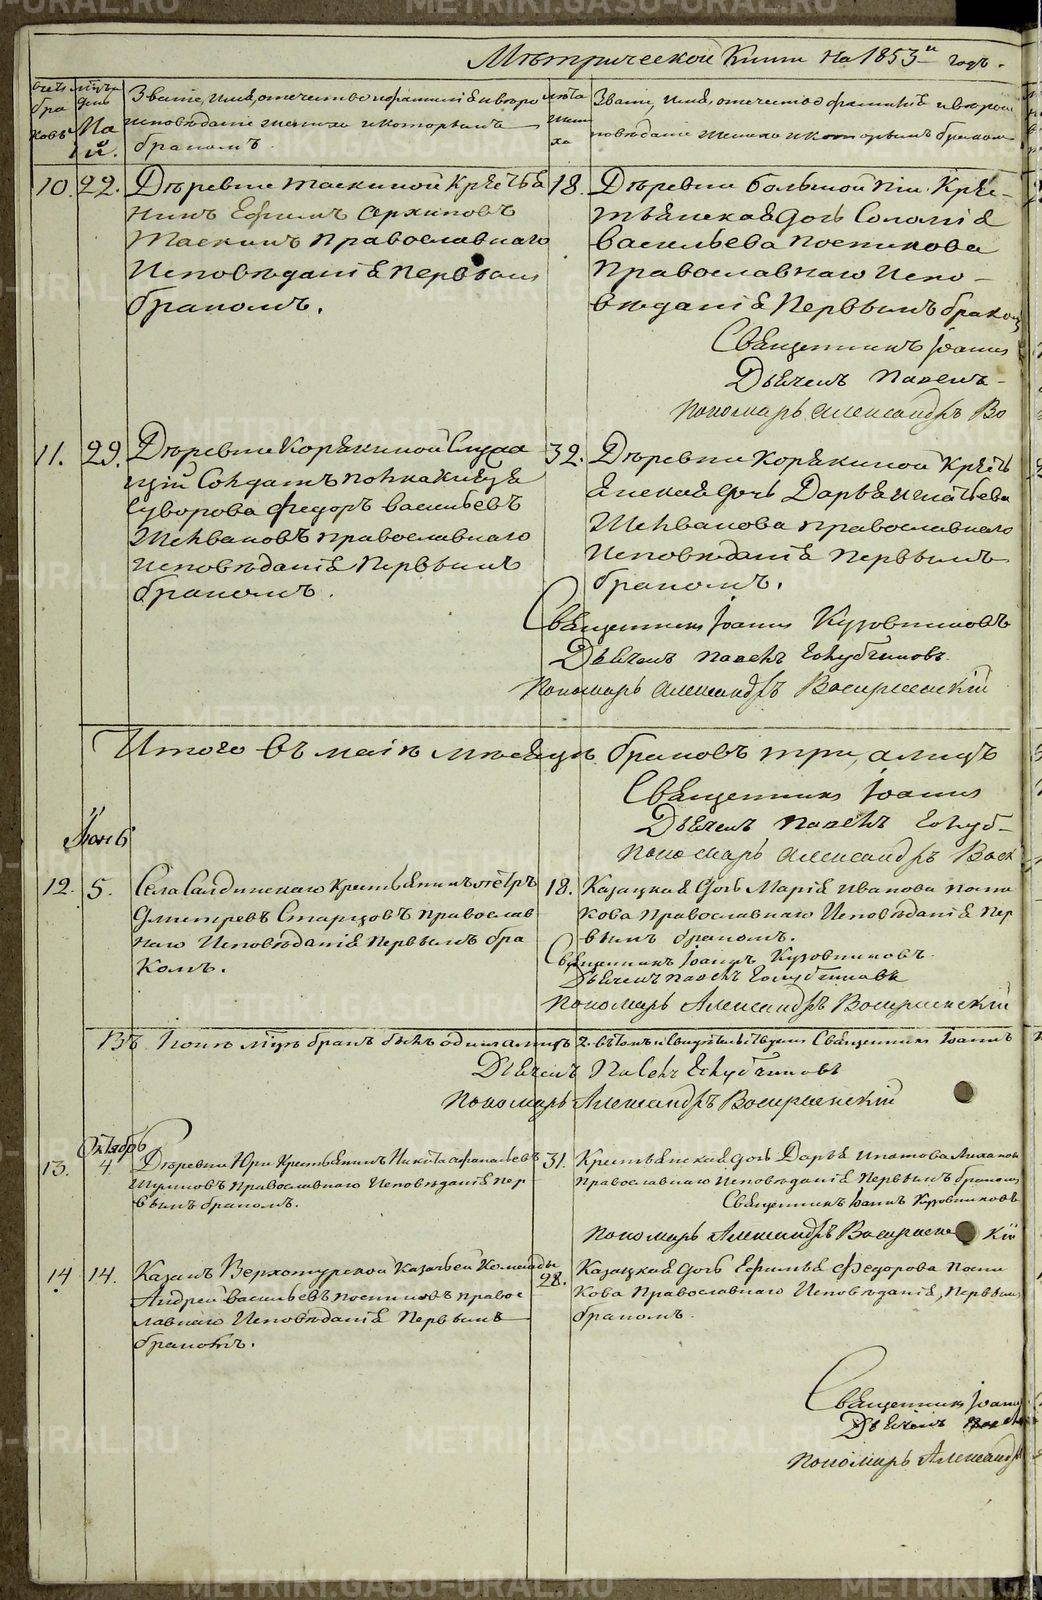 Метрической Книги на 1853й годъ.
Счетъ браковъ
Мѣсяцъ день
Маій.
Званіе, имя, отечество и фамилія
исповѣданіе жениха и которымъ
бракомъ.
лѣта жениха
Званіе, имя, отечество фамилія
исповѣданіе и которымъ бракомъ
10. 22. Деревни Таскиной Крестья
нинъ Ефимъ Архиповъ
Таскинъ Православнаго
Исповѣданія Первымъ
бракомъ.
18. Деревни Большой Крес-
тьянская дочь Соломія
Васильева Постикова
Православнаго Испо-
вѣданія Первымъ бракомъ
Священникъ Іоаннъ
Дьячекъ Павелъ
Пономарь Александръ Во
11. 29. Деревни Корякиной Служа
щій Солдатъ полка Князя
Суворова Федоръ Васильевъ
Шелвановъ Православнаго
Исповѣданія Первымъ
бракомъ.
32. Деревни Корякиной Кресть
янская дочь Дарья Игнатьева
Шелванова Православнаго
Исповѣданія Первымъ
бракомъ.
Священникъ Іоаннъ Кузовниковъ
Дьячекъ Павелъ Голубчиковъ
Пономарь Александръ Воскресенскій
Итого въ маіѣ мѣсяцѣ браковъ три, а лицъ
Священникъ Іоаннъ
Дьячекъ Павелъ Голуб-
Пономарь Александръ Воск
Іюнь
12. 5. Села Салдинскаго Крестьянинъ Петръ
Дмитревъ Старцовъ Православ
наго Исповѣданія Первымъ бра
комъ.
18. Казацкая дочь Марія Иванова Пости
кова Православнаго Исповѣданія Пер
вымъ бракомъ.
Священникъ Іоаннъ Кузовниковъ
Дьячекъ Павелъ Голубчиковъ
Пономарь Александръ Воскресенскій
Въ Іюнѣ мѣсяцѣ бракъ былъ одинъ а лицъ 2. въ томъ и Свидѣтельствуемъ Священникъ Іоаннъ
Дьячекъ Павелъ Голубчиковъ
Пономарь Александръ Воскресенскій
Октябрь
13. 4. Деревни Крестьянинъ Никита Афанасьевъ
Православнаго Исповѣданія Пер
вымъ бракомъ.
31. Крестьянская дочь Дарья Ипатова
Православнаго Исповѣданія Первымъ бракомъ
Священникъ Іоаннъ Кузовниковъ
Пономарь Александръ Воскресенскій
14 14. Казакъ Верхотурской Казачьей Команды
Андрей Васильевъ Постиковъ Правос
лавнаго Исповѣданія Первымъ
бракомъ.
28. Казацкая дочь Ефимья Федорова Пости
кова Православнаго Исповѣданія, Первымъ
бракомъ.
Священникъ Іоаннъ
Дьячекъ Павелъ
Пономарь Александръ
METRIKI.GASO-URAL.RU